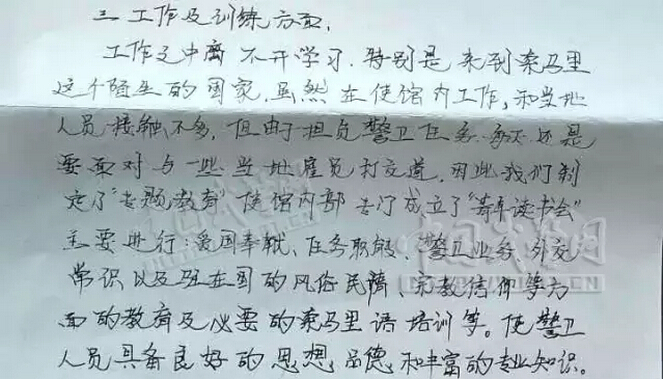 三、工作及训练方面,
工作之中离不开学习.特别是来到索马里
这个陌生的国家.虽然在使馆内工作,和当地
人员接触不多,但由于担负警卫任务.每天还是
要面对与一些当地雇员打交道,因此我们制
定了“专题教育”使馆内部专门成立了“青年读书会”
主要进行:爱国奉献、任务职能、警卫业务、外交
常识以及驻在国的风俗民情、宗教信仰等方
面的教育及必要的索马里语培训等。使警卫
人员具备良好的思想、品德、和丰富的专业知识。